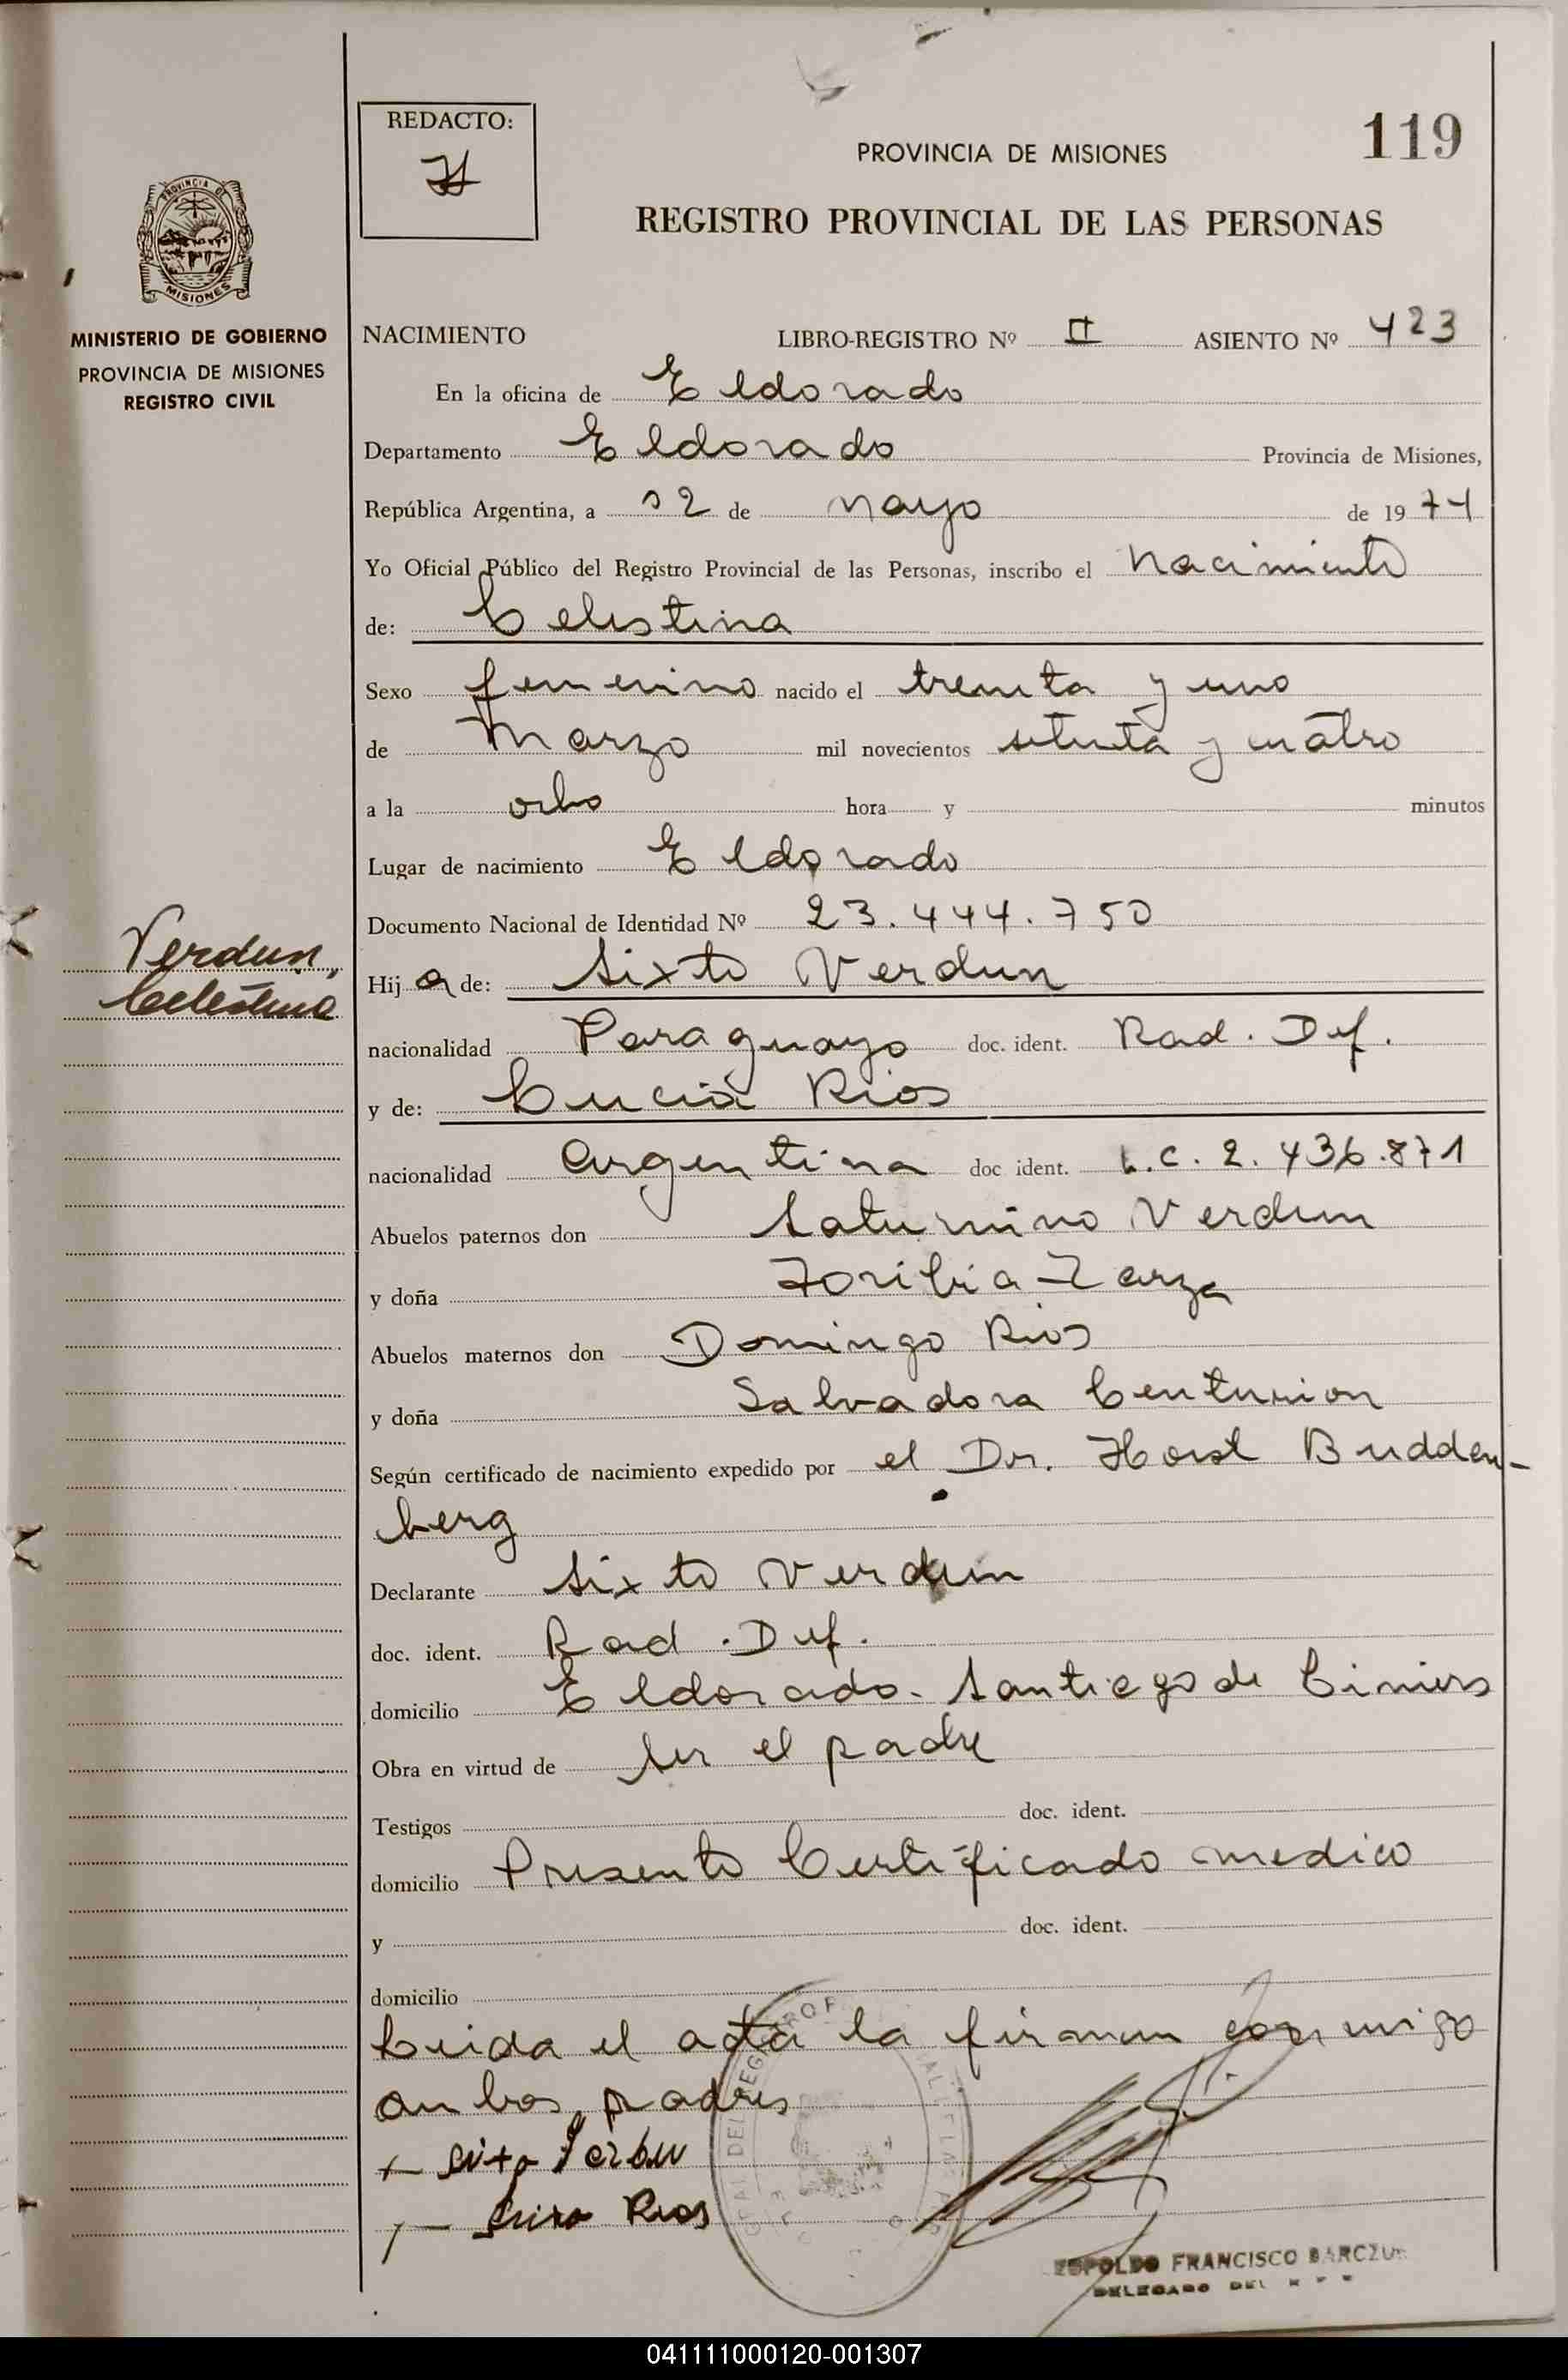 REDACTO:
119
PROVINCIA DE MISIONES
REGISTRO PROVINCIAL DE LAS PERSONAS
PROVINCIA DE
MISIONES
MINISTERIO DE GOBIERNO
PROVINCIA DE MISIONES
REGISTRO CIVIL
NACIMIENTO LIBRO-REGISTRO Nº II ASIENTO Nº 423
En la oficina de Eldorado
Departamento Eldorado Provincia de Misiones,
República Argentina, a 02 de mayo de 1974
Yo Oficial Público del Registro Provincial de las Personas, inscribo el nacimiento
de: Celestina
Sexo femenino nacido el treinta y uno
de Marzo mil novecientos setenta y cuatro
a la ocho hora y minutos
Lugar de nacimiento Eldorado
Documento Nacional de Identidad Nº 23.444.750
Verdun,
Celestina
Hija de: Sixto Verdun
nacionalidad Paraguayo doc. ident. Rad. Def.
y de: Lucia Rios
nacionalidad Argentina doc ident. L.C. 2.436.871
Abuelos paternos don Saturnino Verdun
y doña Toribia Zarza
Abuelos maternos don Domingo Rios
y doña Salvadora Centurion
Según certificado de nacimiento expedido por el Dr. Horst Budden-
berg
Declarante Sixto Verdun
doc. ident. Rad. Def.
domicilio Eldorado. Santiago de Liniers
Obra en virtud de ser el padre
Testigos doc. ident.
domicilio Presento Certificado medico
y doc. ident.
domicilio
Leida el acta la firman conmigo
ambos padres
Rios
LEOPOLDO FRANCISCO BARCZUK
DELEGADO DEL
041111000120-001307